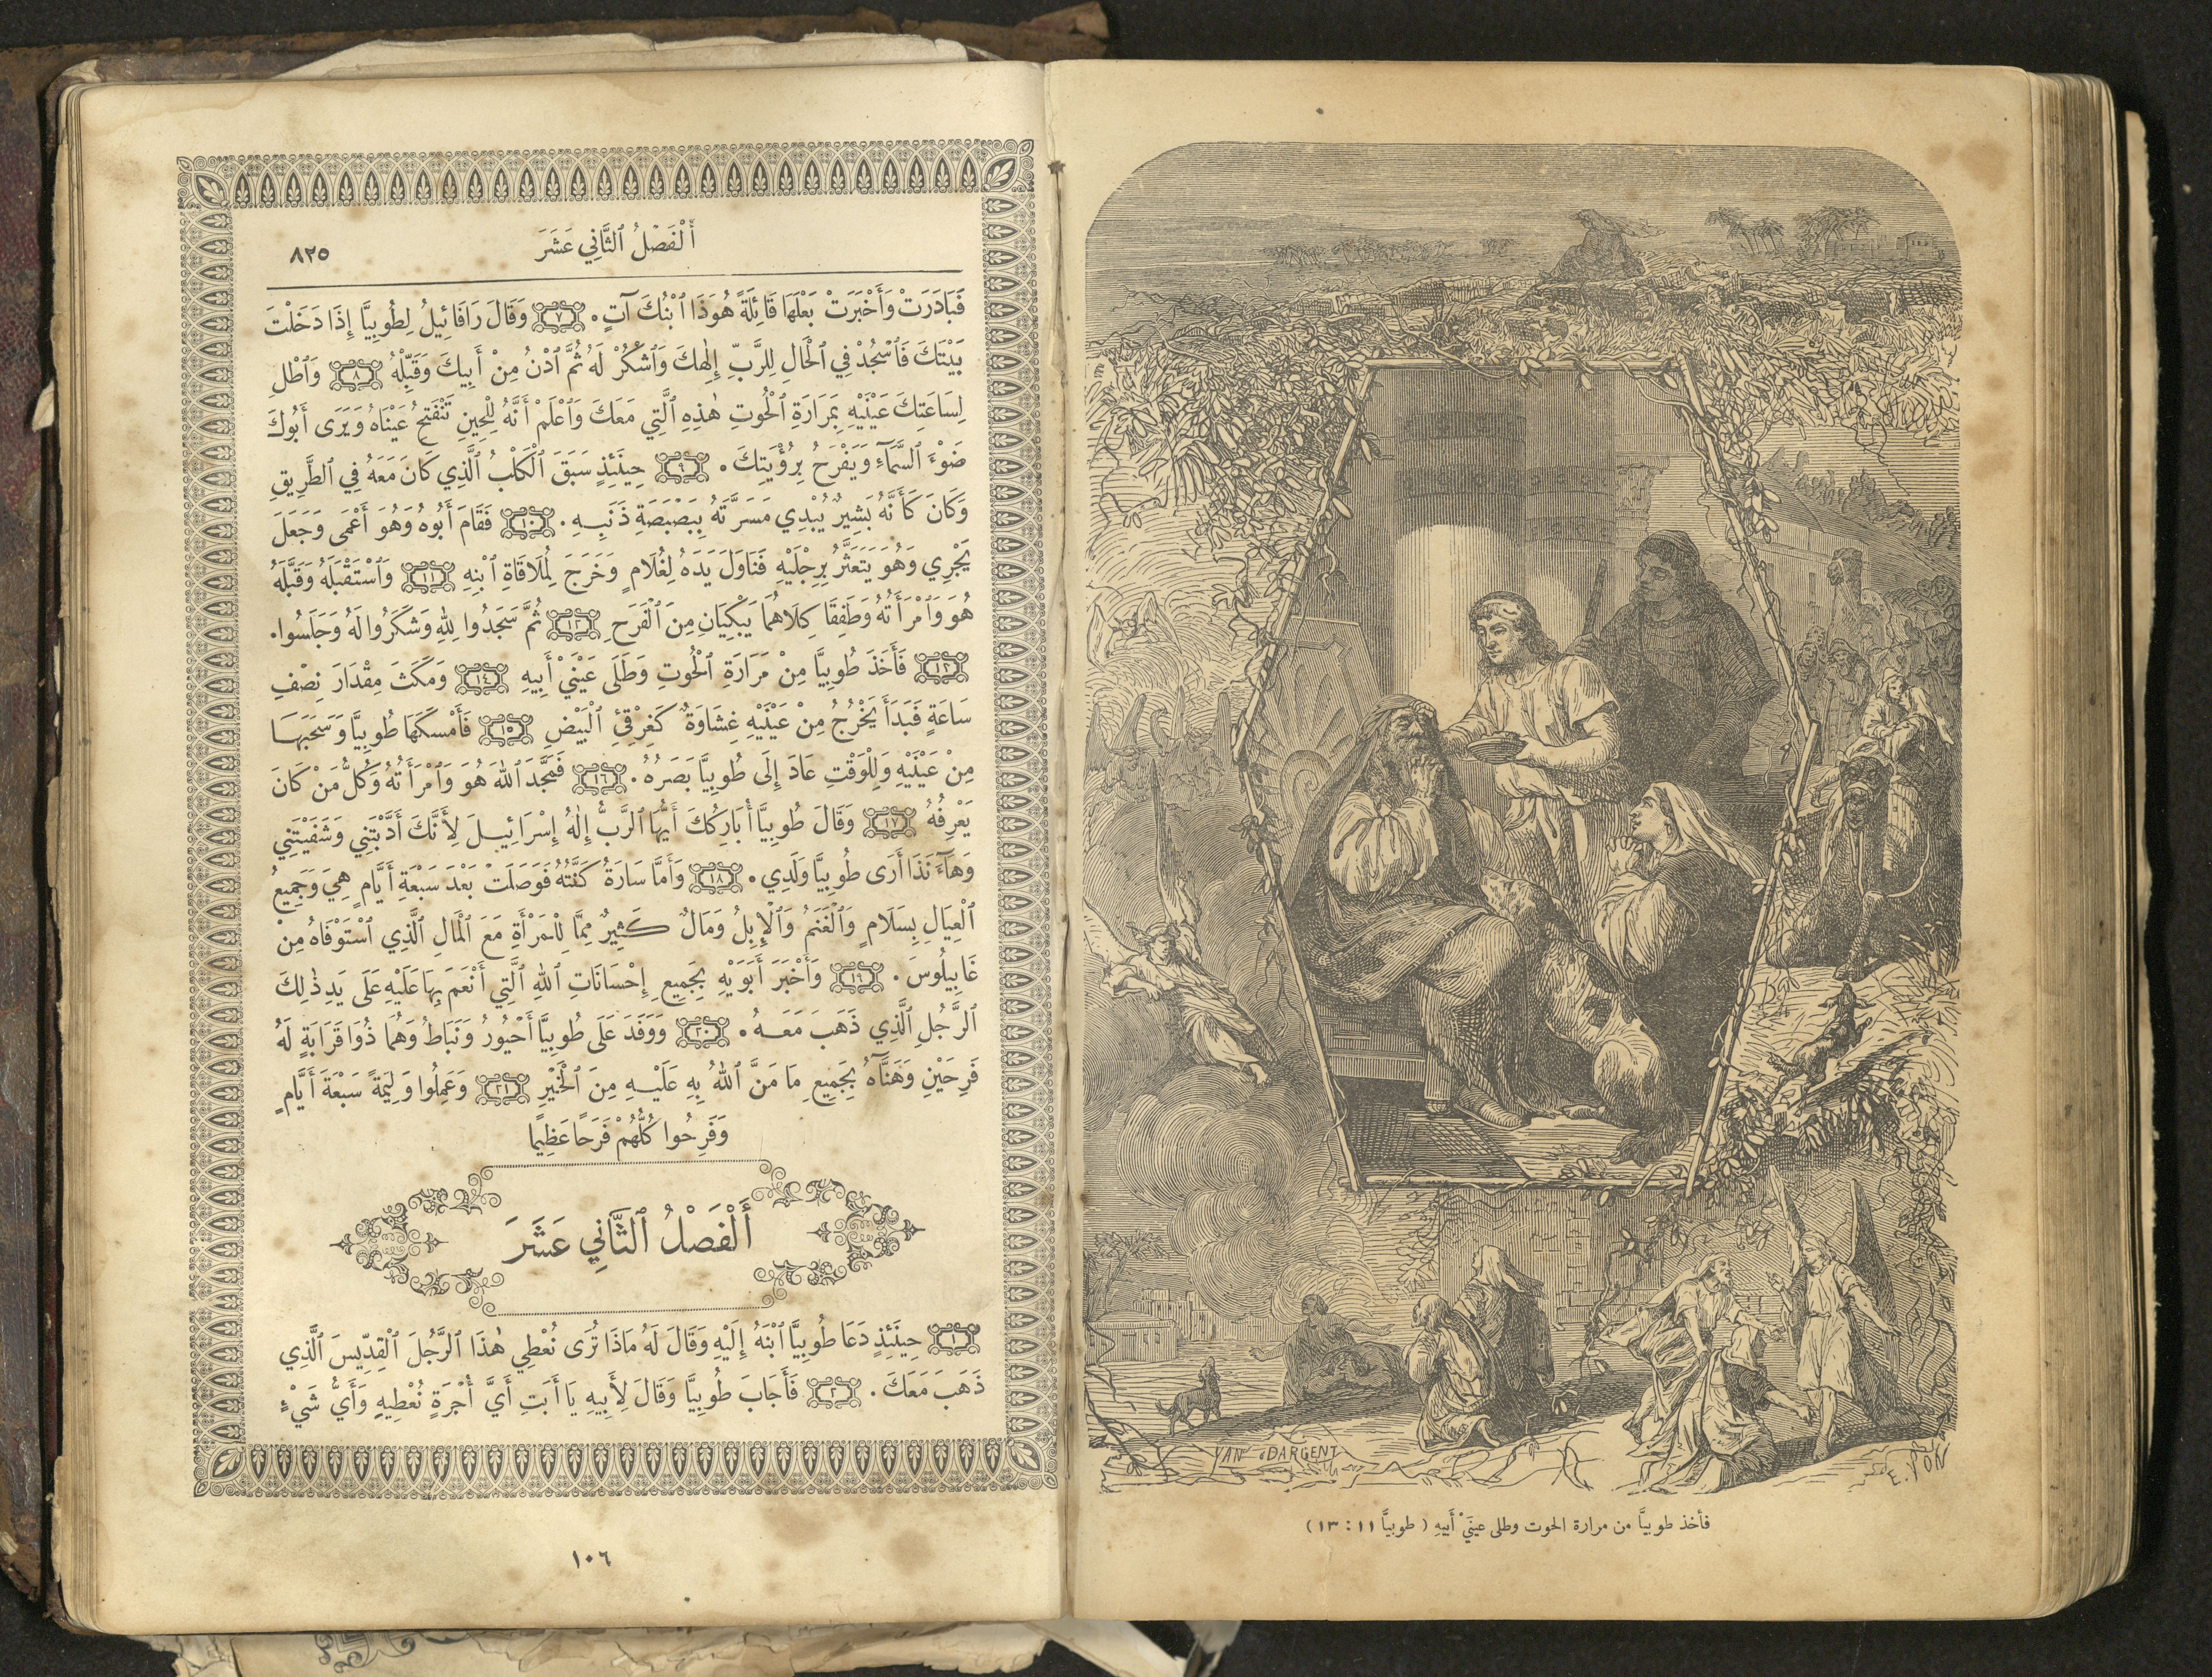 YAN DARGENT
E. YON
فأخذ طوبيَّا من مرارة الحوت وطلى عينَيْ أَبيهِ ( طوبيَّا ١١ : ١٣ )
أَلْفَصْلُ ٱلثَّانِي عَشَرَ
٨٢٥
فَبَادَرَتْ وَأَخْبَرَتْ بَعْلَهَا قَائِلَةً هُوَذَا ٱبْنُكَ آتٍ. ٧ وَقَالَ رَافَائِيلُ لِطُوبِيَّا إِذَا دَخَلْتَ
بَيْتَكَ فَٱسْجُدْ فِي ٱلْحَالِ لِلرَّبِّ إِلٰهِكَ وَٱشْكُرْ لَهُ ثُمَّ ٱدْنُ مِنْ أَبِيكَ وَقَبِّلْهُ ٨ وَٱطْلِ
لِسَاعَتِكَ عَيْنَيْهِ بِمَرَارَةِ ٱلْحُوتِ هٰذِهِ ٱلَّتِي مَعَكَ وَٱعْلَمْ أَنَّهُ لِلْحِينِ تَنْفَتِحُ عَيْنَاهُ وَيَرَى أَبُوكَ
ضَوْءَ ٱلسَّمَآءِ وَيَفْرَحُ بِرُؤْيَتِكَ. ٩ حِينَئِذٍ سَبَقَ ٱلْكَلْبُ ٱلَّذِي كَانَ مَعَهُ فِي ٱلطَّرِيقِ
وَكَانَ كَأَنَّهُ بَشِيرٌ يُبْدِي مَسَرَّتَهُ بِبَصْبَصَةِ ذَنَبِهِ. ١٠ فَقَامَ أَبُوهُ وَهُوَ أَعْمَى وَجَعَلَ
يَجْرِي وَهُوَ يَتَعَثَّرُ بِرِجْلَيْهِ فَنَاوَلَ يَدَهُ لِغُلَامٍ وَخَرَجَ لِمُلَاقَاةِ ٱبْنِهِ ١١ وَٱسْتَقْبَلَهُ وَقَبَّلَهُ
هُوَ وَٱمْرَأَتُهُ وَطَفِقَا كِلَاهُمَا يَبْكِيَانِ مِنَ ٱلْفَرَحِ ١٢ ثُمَّ سَجَدُوا لِلهِ وَشَكَرُوا لَهُ وَجَلَسُوا.
١٣ فَأَخَذَ طُوبِيَّا مِنْ مَرَارَةِ ٱلْحُوتِ وَطَلَى عَيْنَيْ أَبِيهِ ١٤ وَمَكَثَ مِقْدَارَ نِصْفِ
سَاعَةٍ فَبَدَأَ يَخْرُجُ مِنْ عَيْنَيْهِ غِشَاوَةٌ كَغِرْقِئِ ٱلْبَيْضِ ١٥ فَأَمْسَكَهَا طُوبِيَّا وَسَحَبَهَا
مِنْ عَيْنَيْهِ وَلِلْوَقْتِ عَادَ إِلَى طُوبِيَّا بَصَرُهُ. ١٦ فَمَجَّدَ ٱللهَ هُوَ وَٱمْرَأَتُهُ وَكُلُّ مَنْ كَانَ
يَعْرِفُهُ ١٧ وَقَالَ طُوبِيَّا أُبَارِكُكَ أَيُّهَا ٱلرَّبُّ إِلٰهُ إِسْرَائِيلَ لِأَنَّكَ أَدَّبْتَنِي وَشَفَيْتَنِي
وَهَآءَنَذَا أَرَى طُوبِيَّا وَلَدِي. ١٨ وَأَمَّا سَارَةُ كَنَّتُهُ فَوَصَلَتْ بَعْدَ سَبْعَةِ أَيَّامٍ هِيَ وَجَمِيعُ
ٱلْعِيَالِ بِسَلَامٍ وَٱلْغَنَمُ وَٱلْإِبِلُ وَمَالٌ كَثِيرٌ مِمَّا لِلْمَرْأَةِ مَعَ ٱلْمَالِ ٱلَّذِي ٱسْتَوْفَاهُ مِنْ
غَابِيلُوسَ. ١٩ وَأَخْبَرَ أَبَوَيْهِ بِجَمِيعِ إِحْسَانَاتِ ٱللهِ ٱلَّتِي أَنْعَمَ بِهَا عَلَيْهِ عَلَى يَدِ ذٰلِكَ
ٱلرَّجُلِ ٱلَّذِي ذَهَبَ مَعَهُ. ٢٠ وَوَفَدَ عَلَى طُوبِيَّا أَحْيُورُ وَنَبَاطُ وَهُمَا ذُوَا قَرَابَةٍ لَهُ
فَرِحَيْنِ وَهَنَّآهُ بِجَمِيعِ مَا مَنَّ ٱللهُ بِهِ عَلَيْهِ مِنَ ٱلْخَيْرِ ٢١ وَعَمِلُوا وَلِيمَةً سَبْعَةَ أَيَّامٍ
وَفَرِحُوا كُلُّهُمْ فَرَحًا عَظِيمًا
أَلْفَصْلُ ٱلثَّانِي عَشَرَ
١ حِينَئِذٍ دَعَا طُوبِيَّا ٱبْنَهُ إِلَيْهِ وَقَالَ لَهُ مَاذَا تُرَى نُعْطِي هٰذَا ٱلرَّجُلَ ٱلْقِدِّيسَ ٱلَّذِي
ذَهَبَ مَعَكَ. ٢ فَأَجَابَ طُوبِيَّا وَقَالَ لِأَبِيهِ يَا أَبَتِ أَيَّ أُجْرَةٍ نُعْطِيهِ وَأَيُّ شَيْءٍ
١٠٦